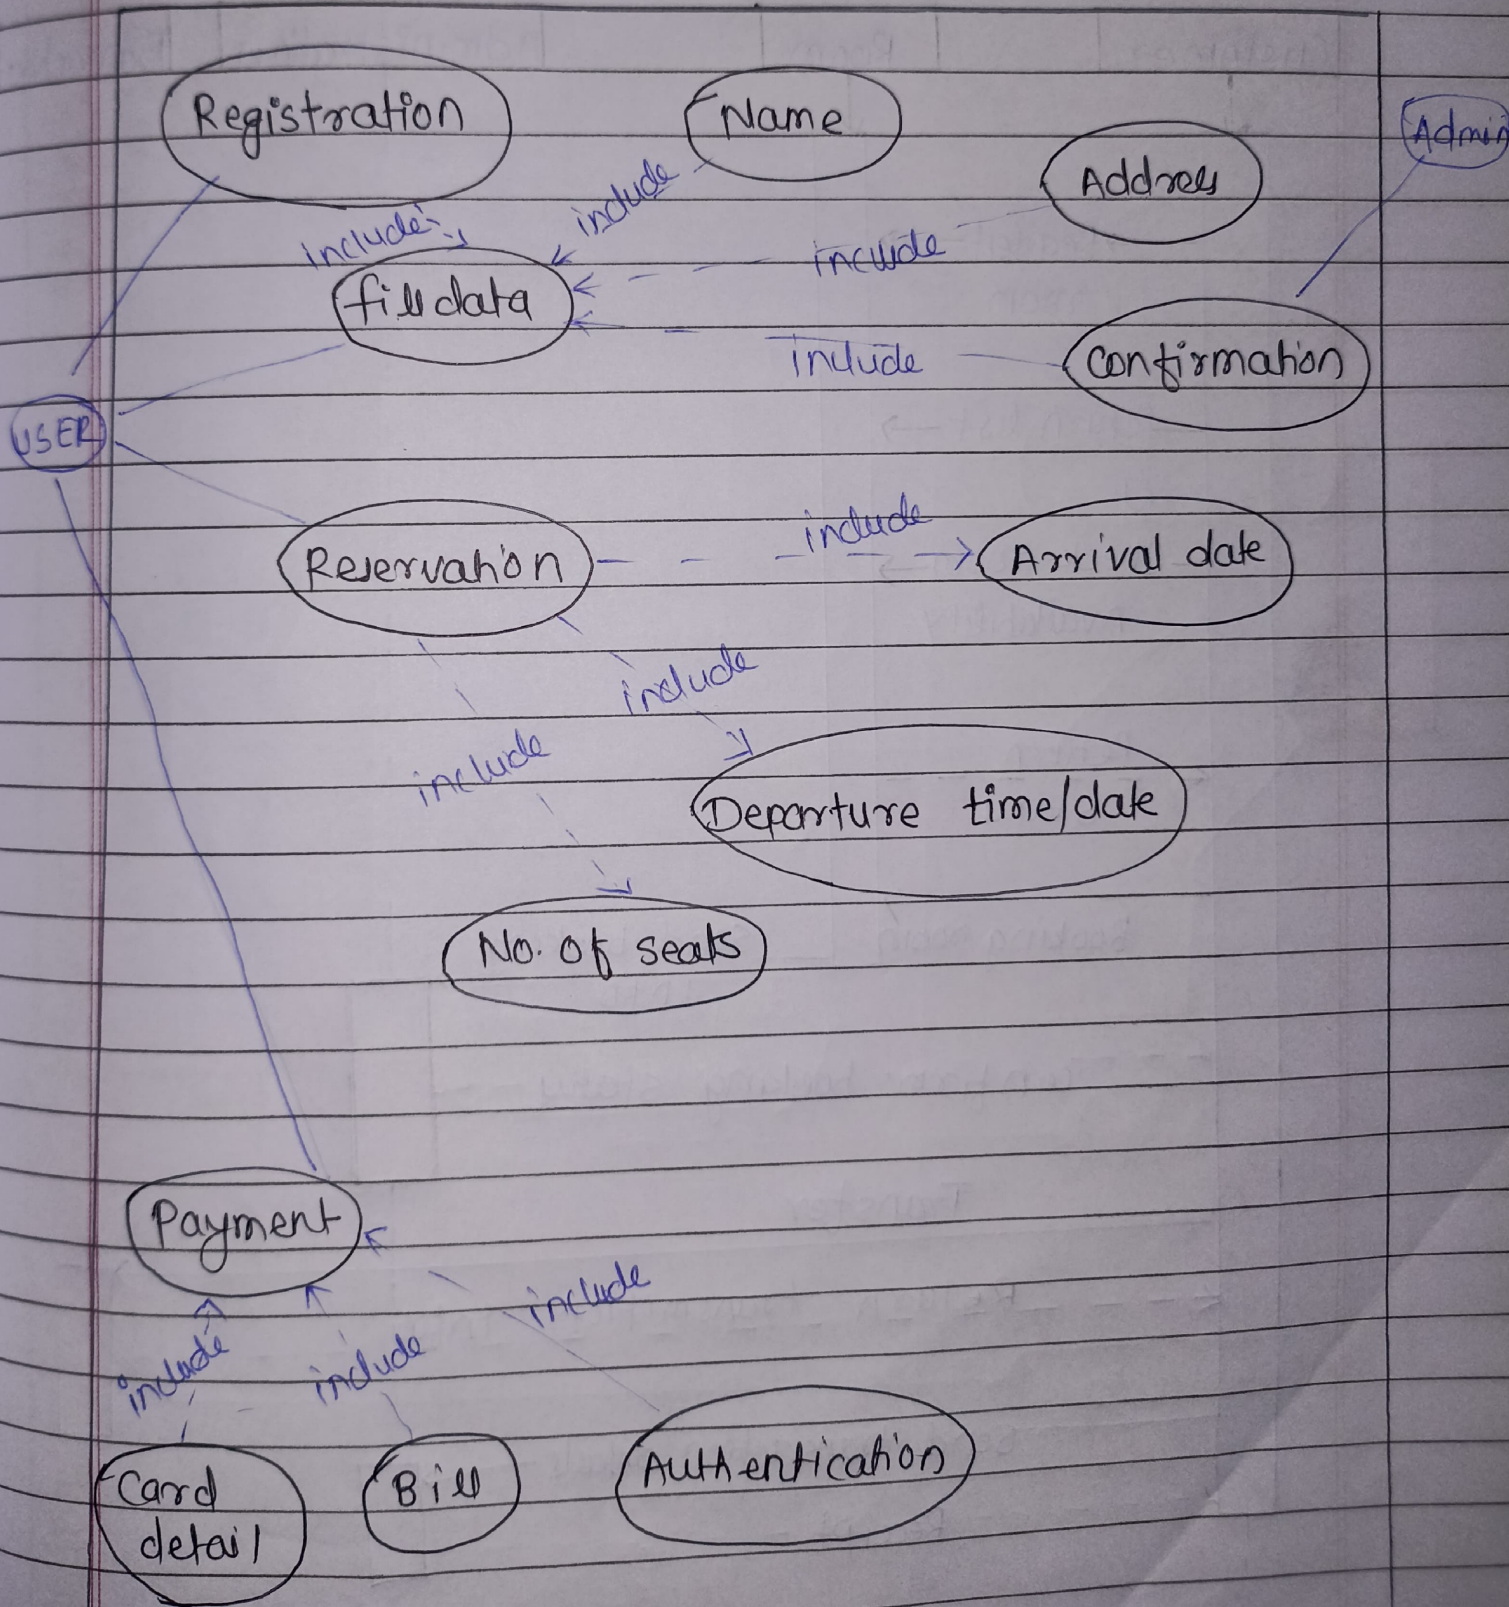 Registration
Name
Admin
Address
include
include
include
fill data
include
confirmation
USER
include
Reservation
Arrival date
include
include
Departure time/date
No. of seats
Payment
include
include
include
Card
detail
Bill
Authentication